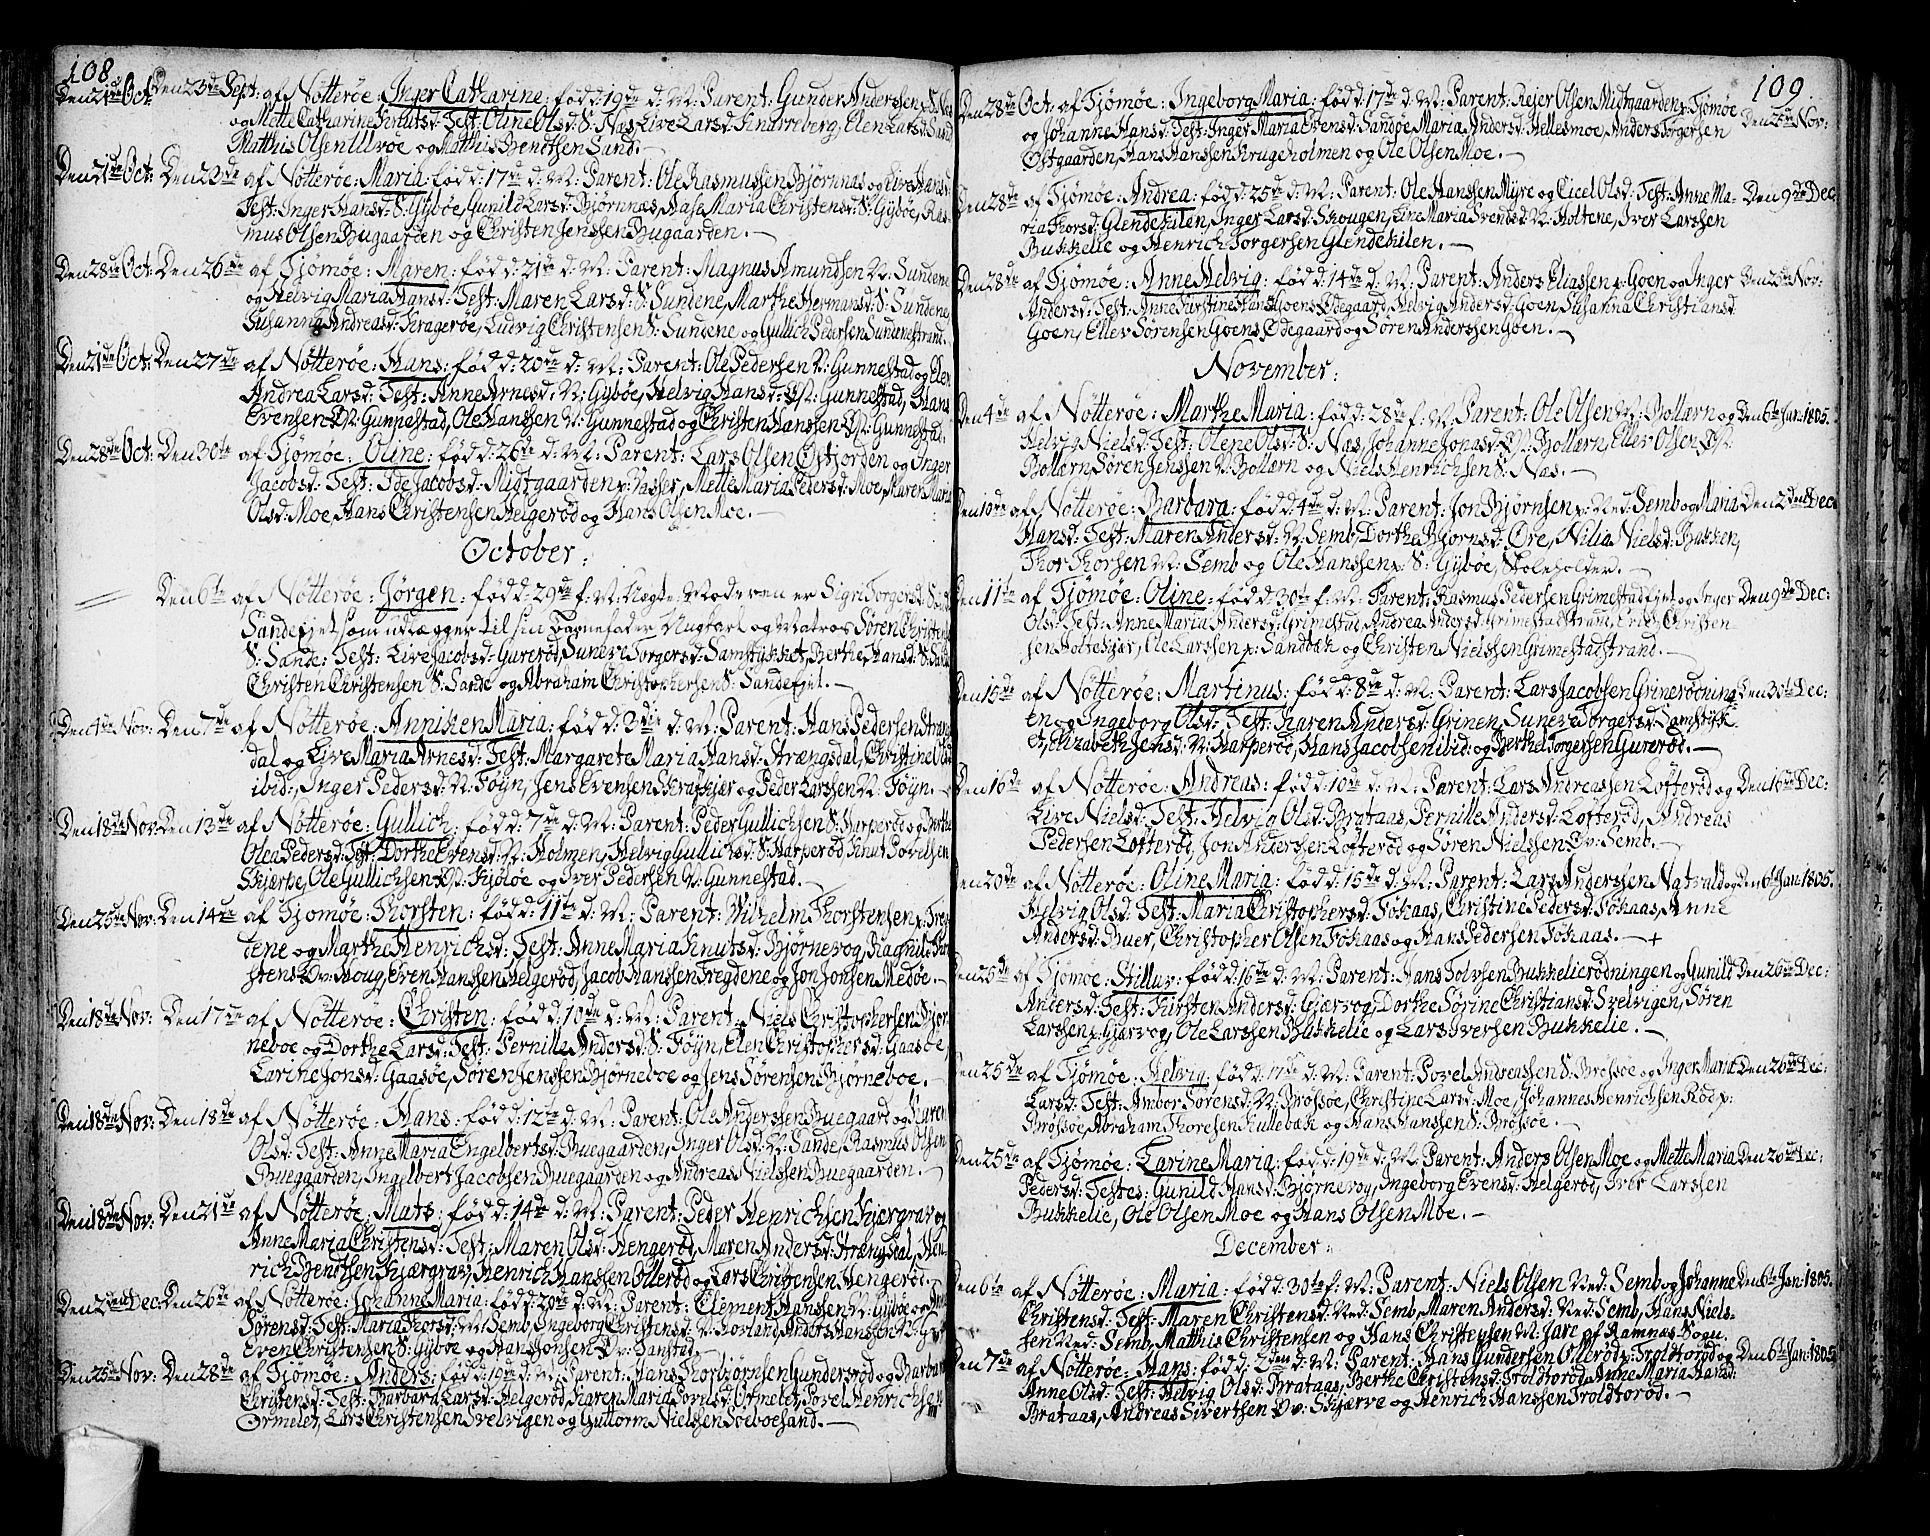 108
Den 21de Oct: Den 23de Sept: af Nötteröe: Inger Catharine: född: 19de d: M: Parent: Gunder Anderssen S: Næs
og Mette Catharine Knutsd: Test: Oline Olsd: S: Næs, Live Larsd: Knarreberg, Elen Larsd: Sand
Matthis Olsen Ulvöe og Matthis Bendtsen Sand. —
Den 21de Oct: Den 23de af Nötteröe: Maria: född: 17de d: M: Parent: Ole Rasmussen Bjørnnæs og Live Hansd:
Test: Inger Hansd: S: Gyböe, Gunild Larsd: Bjørnnæs, Aase Maria Christensd: S: Gyböe, Ras-
mus Olsen Bugaarden og Christen Jenssen Bugaarden. —
Den 28de Oct: Den 26de af Tjömöe: Maren: född: 21de d: M: Parent: Magnus Amundsen N: Sundene
og Helvig Maria Hansd: Test: Maren Larsd: S: Sundene, Marthe Hermansd: S: Sundene,
Susanna Andreasd: Krageröe, Ludvig Christensen S: Sundene og Gullich Pedersen Sundenestrand.
Den 21de Oct: Den 27de af Nötteröe: Hans: född: 20de d: M: Parent: Ole Pedersen N: Gunnestad og Elen
Andrea Larsd: Test: Anne Arnesd: N: Gyböe, Helvig Hansd: Ø: Gunnestad, Hans
Evensen Ø: Gunnestad, Ole Hanssen N: Gunnestad og Christen Hanssen Ø: Gunnestad.
Den 28de Oct: Den 30te af Tjömöe: Oline: född: 26de d: M: Parent: Lars Olsen Østjorden og Inger
Jacobsd: Test: Ide Jacobsd: Midtgaarden p: Vasser, Mette Maria Pedersd: Moe, Maren Maria
Olsd: Moe, Hans Christensen Helgeröd og Hans Olsen Moe. —
October:
Den 6te af Nötteröe: Jörgen: född: 29de f: M: Uægte: Moderen er Sigri Torgersd: S: Sande
Sandefjet som udlægger til sin Barnefader Ungkarl og Matros Sören Christens:
S: Sande: Test: Live Jacobsd: Gureröd, Suneve Torgersd: Samstykket, Berthe Hansd: S: Sande
Christen Christensen S: Sande og Abraham Christophersen S: Sandefjet. —
Den 4de Nov: Den 7de af Nötteröe: Anniken Maria: född: 3die d: M: Parent: Hans Pedersen Stræng
dal og Live Maria Arnesd: Test: Margarete Maria Hansd: Strængsdal, Christine Olsd:
ibid:, Inger Pedersd: N: Föyn, Jens Evensen Skrafkjær og Peder Larssen N: Föyn. —
Den 18de Nov: Den 13de af Nötteröe: Gullich: född: 7de d: M: Parent: Peder Gullichsen S: Harperöd og Berthe
Olea Pedersd: Test: Dorthe Evensd: N: Holmen, Helvig Gullichsd: S: Harperöd Knut Povelsen
Skjærpe, Ole Gullichsen Ø: Kjölöe og Iver Pedersen N: Gunnestad. —
Den 25de Nov: Den 14de af Tjömöe: Thorsten: född: 11te d: M: Parent: Wilhelm Thorstensen p: Treg
dene og Marthe Henrichsd: Test: Anne Maria Knutsd: Bjørnevog, Ragnild Thor
stensd: Ø: Houg, Even Hanssen Helgeröd, Jacob Hanssen Tregdene og Jon Jonsen Medöe. —
Den 18de Nov: Den 17de af Nötteröe: Christen: född: 10de d: M: Parent: Niels Christophersen Bjør
neboe og Dorthe Larsd: Test: Pernille Andersd: S: Föyn, Elen Christophersd: Gaasöe,
Larche Jonsd: Gaasöe, Sören Jenssen Bjørneboe og Jens Sörensen Bjørneboe. —
Den 18de Nov: Den 18de af Nötteröe: Hans: född: 12te d: M: Parent: Ole Anderssen Buegaard og Karen
Olsd: Test: Anne Maria Engelbertsd: Buegaarden, Inger Olsd: N: Sande, Rasmus Olsen
Buegaarden, Ingelbert Jacobsen Buegaarden og Andreas Nielssen Buegaarden. —
Den 18de Nov: Den 21de af Nötteröe: Mats: född: 14de d: M: Parent: Peder Henrichsen Kjærgrav og
Anne Maria Christensd: Test: Maren Olsd: Hengeröd, Maren Andersd: Strængsdal, Hen-
rich Bendtsen Kjærgrav, Henrich Hanssen Olleröd og Lars Christensen Hengeröd. —
Den 2den Dec: Den 26de af Nötteröe: Johanne Maria: född: 20de d: M: Parent: Clement Hanssen N: Gyböe og Anne
Sörensd: Test: Maria Thorsd: M: Semb, Ingeborg Christensd: N: Korland, Anders Hanssen N: Gyböe
Even Christensen S: Gyböe og Hans Jonsen Ø: Tanstad.
Den 25de Nov: Den 28de af Tjömöe: Anders: född: 19de d: M: Parent: Hans Thorbjørnsen Gunderöd og Barbara
Christensd: Test: Barbara Larsd: Helgeröd, Karen Maria Jörnsd: Ormelet, Povel Henrichsen
Ormelet, Lars Christensen Svelvigen og Guttorm Nielssen Soeboesand. —
109.
Den 28de Oct: af Tjömöe: Ingeborg Maria: född: 17de d: M: Parent: Rejer Olsen Midtgaarden p: Tjömöe Den 25de Nov:
og Johanne Hansd: Test: Inger Maria Evensd: Sandöe, Maria Andersd: Hellesmoe, Anders Torgersen
Østgaarden, Hans Hanssen Krugeholmen og Ole Olsen Moe. —
Den 28de af Tjömöe: Andrea: född: 25de d: M: Parent: Ole Hanssen Myre og Cicel Olsd: Test: Anne Ma- Den 9de Dec:
ria Thorsd: Glendekilen, Inger Larsd: Skougen, Line Maria Svendsd: N: Holtene, Iver Larssen
Bukkelie og Henrich Torgersen Glendekilen. —
Den 28de af Tjömöe: Anne Helvig: född: 14de d: M: Parent: Anders Eliassen p: Goen og Inger Den 25de Nov:
Andersd: Test: Anne Kirstine Hansd: Goens Ødegaard, Helvig Andersd: Goen Susanna Christiansd
Goen, Eller Sörensen Goens Ødegaard og Sören Anderssen Goen. —
November:
Den 4de af Nötteröe: Marthe Maria: född: 28de f: M: Parent: Ole Olsen N: Bollærn og Den 6te Jan: 1805.
Helvig Nielsd: Test: Olene Olsd: S: Næs, Johanne Jonasd: Ø: Bollærn, Eller Olsen Ø:
Bollærn, Sören Jenssen N: Bollærn og Niels Henrichsen S: Næs. —
Den 10de af Nötteröe: Barbara: född: 4de d: M: Parent: Jon Bjørnsen p: Ned: Semb og Maria Den 2den Dec:
Hansd: Test: Maren Andersd: N: Semb, Dorthe Bjørnsd: Öre, Nilia Nielsd: Bakken,
Thor Thorsen M: Semb og Ole Hanssen p: S: Gyböe, Skoleholder. —
Den 11te af Tjömöe: Oline: född: 30te f: M: Parent: Rasmus Pedersen Grimestadfjet og Inger Den 9de Dec:
Olsd: Test: Anne Maria Andersd: Grimestad, Andrea Andersd: Grimestadstrand, Erich Christen
sen Holteskjær, Ole Larssen p: Sandbæk og Christen Nielssen Grimestadstrand. —
Den 15de af Nötteröe: Martinus: född: 8de d: M: Parent: Lars Jacobsen Grinerödning Den 30te Dec:
en og Ingeborg Olsd: Test: Karen Andersd: Grinen, Suneve Torgersd: Samstyk
et, Elizabeth Jensd: N: Harperöd, Hans Jacobsen ibid: og Berthel Torgersen Gureröd. —
Den 16de af Nötteröe: Andreas: född: 10de d: M: Parent: Lars Andreassen Lofteröd og Den 16de Dec:
Live Nielsd: Test: Helvig Olsd: Brataas, Pernille Andersd: Lofteröd, Andreas
Pedersen Lofteröd, Jon Anderssen Lofteröd og Sören Nielssen Øv: Semb. —
Den 20de af Nötteröe: Oline Maria: född: 15de d: M: Parent: Lars Anderssen Natvald og Den 6te Jan: 1805.
Helvig Olsd: Test: Maria Christophersd: Fökaas, Christine Pedersd: Fökaas, Anne
Andersd: Buer, Christopher Olsen Fökaas og Hans Pedersen Fökaas. — +
Den 25de af Tjömoe: Stillur: född: 16de d: M: Parent: Hans Tolvsen Bukkelierödningen og Gunild Den 26de Dec:
Andersd: Test: Kirsten Andersd: Gjærvog, Dorthe Sörine Christiansd: Svelvigen, Sören
Larssen p: Gjærvog, Ole Larssen Bukkelie og Lars Iversen Bukkelie. —
Den 25de af Tjömöe: Helvig: född: 17de d: M: Parent: Povel Andreassen S: Brössöe og Inger Maria Den 26de Dec:
Larsd: Test: Ambor Sörensd: N: Brössöe, Christine Larsd: Moe, Johannes Henrichsen Röd p:
Brössöe, Abraham Thoresen Kullebæk og Hans Hanssen S: Brössöe. —
Den 25de af Tjömöe: Karine Maria: född: 19de d: M: Parent: Anders Olsen Moe og Mette Maria Den 26de Dec:
Pedersd: Testes: Gunild Hansd: Bjørnevog, Ingeborg Evensd: Helgeröd, Iver Larssen
Bukkelie, Ole Olsen Moe og Hans Olsen Moe. —
December:
Den 6te af Nötteröe: Maria: född: 30te f: M: Parent: Niels Olsen Ned: Semb og Johanne Den 6te Jan: 1805.
Christensd: Test: Maren Christensd: Ned: Semb, Maren Andersd: Ned: Semb, Hans Niels-
sen Ned: Semb, Matthis Christensen og Hans Christensen N: Jare af Ramnæs Sogn.
Den 7de af Nötteröe: Hans: född: 2den d: M: Parent: Hans Gundersen Olleröd p: Troldtoröd og Den 6te Jan: 1805
Anne Olsd: Test: Helvig Olsd: Brataas, Berthe Christensd: Troldtoröd, Anne Maria Hansd:
Brataas, Andreas Sivertsen Øv: Skjærve og Henrich Hanssen Troldtoröd. —